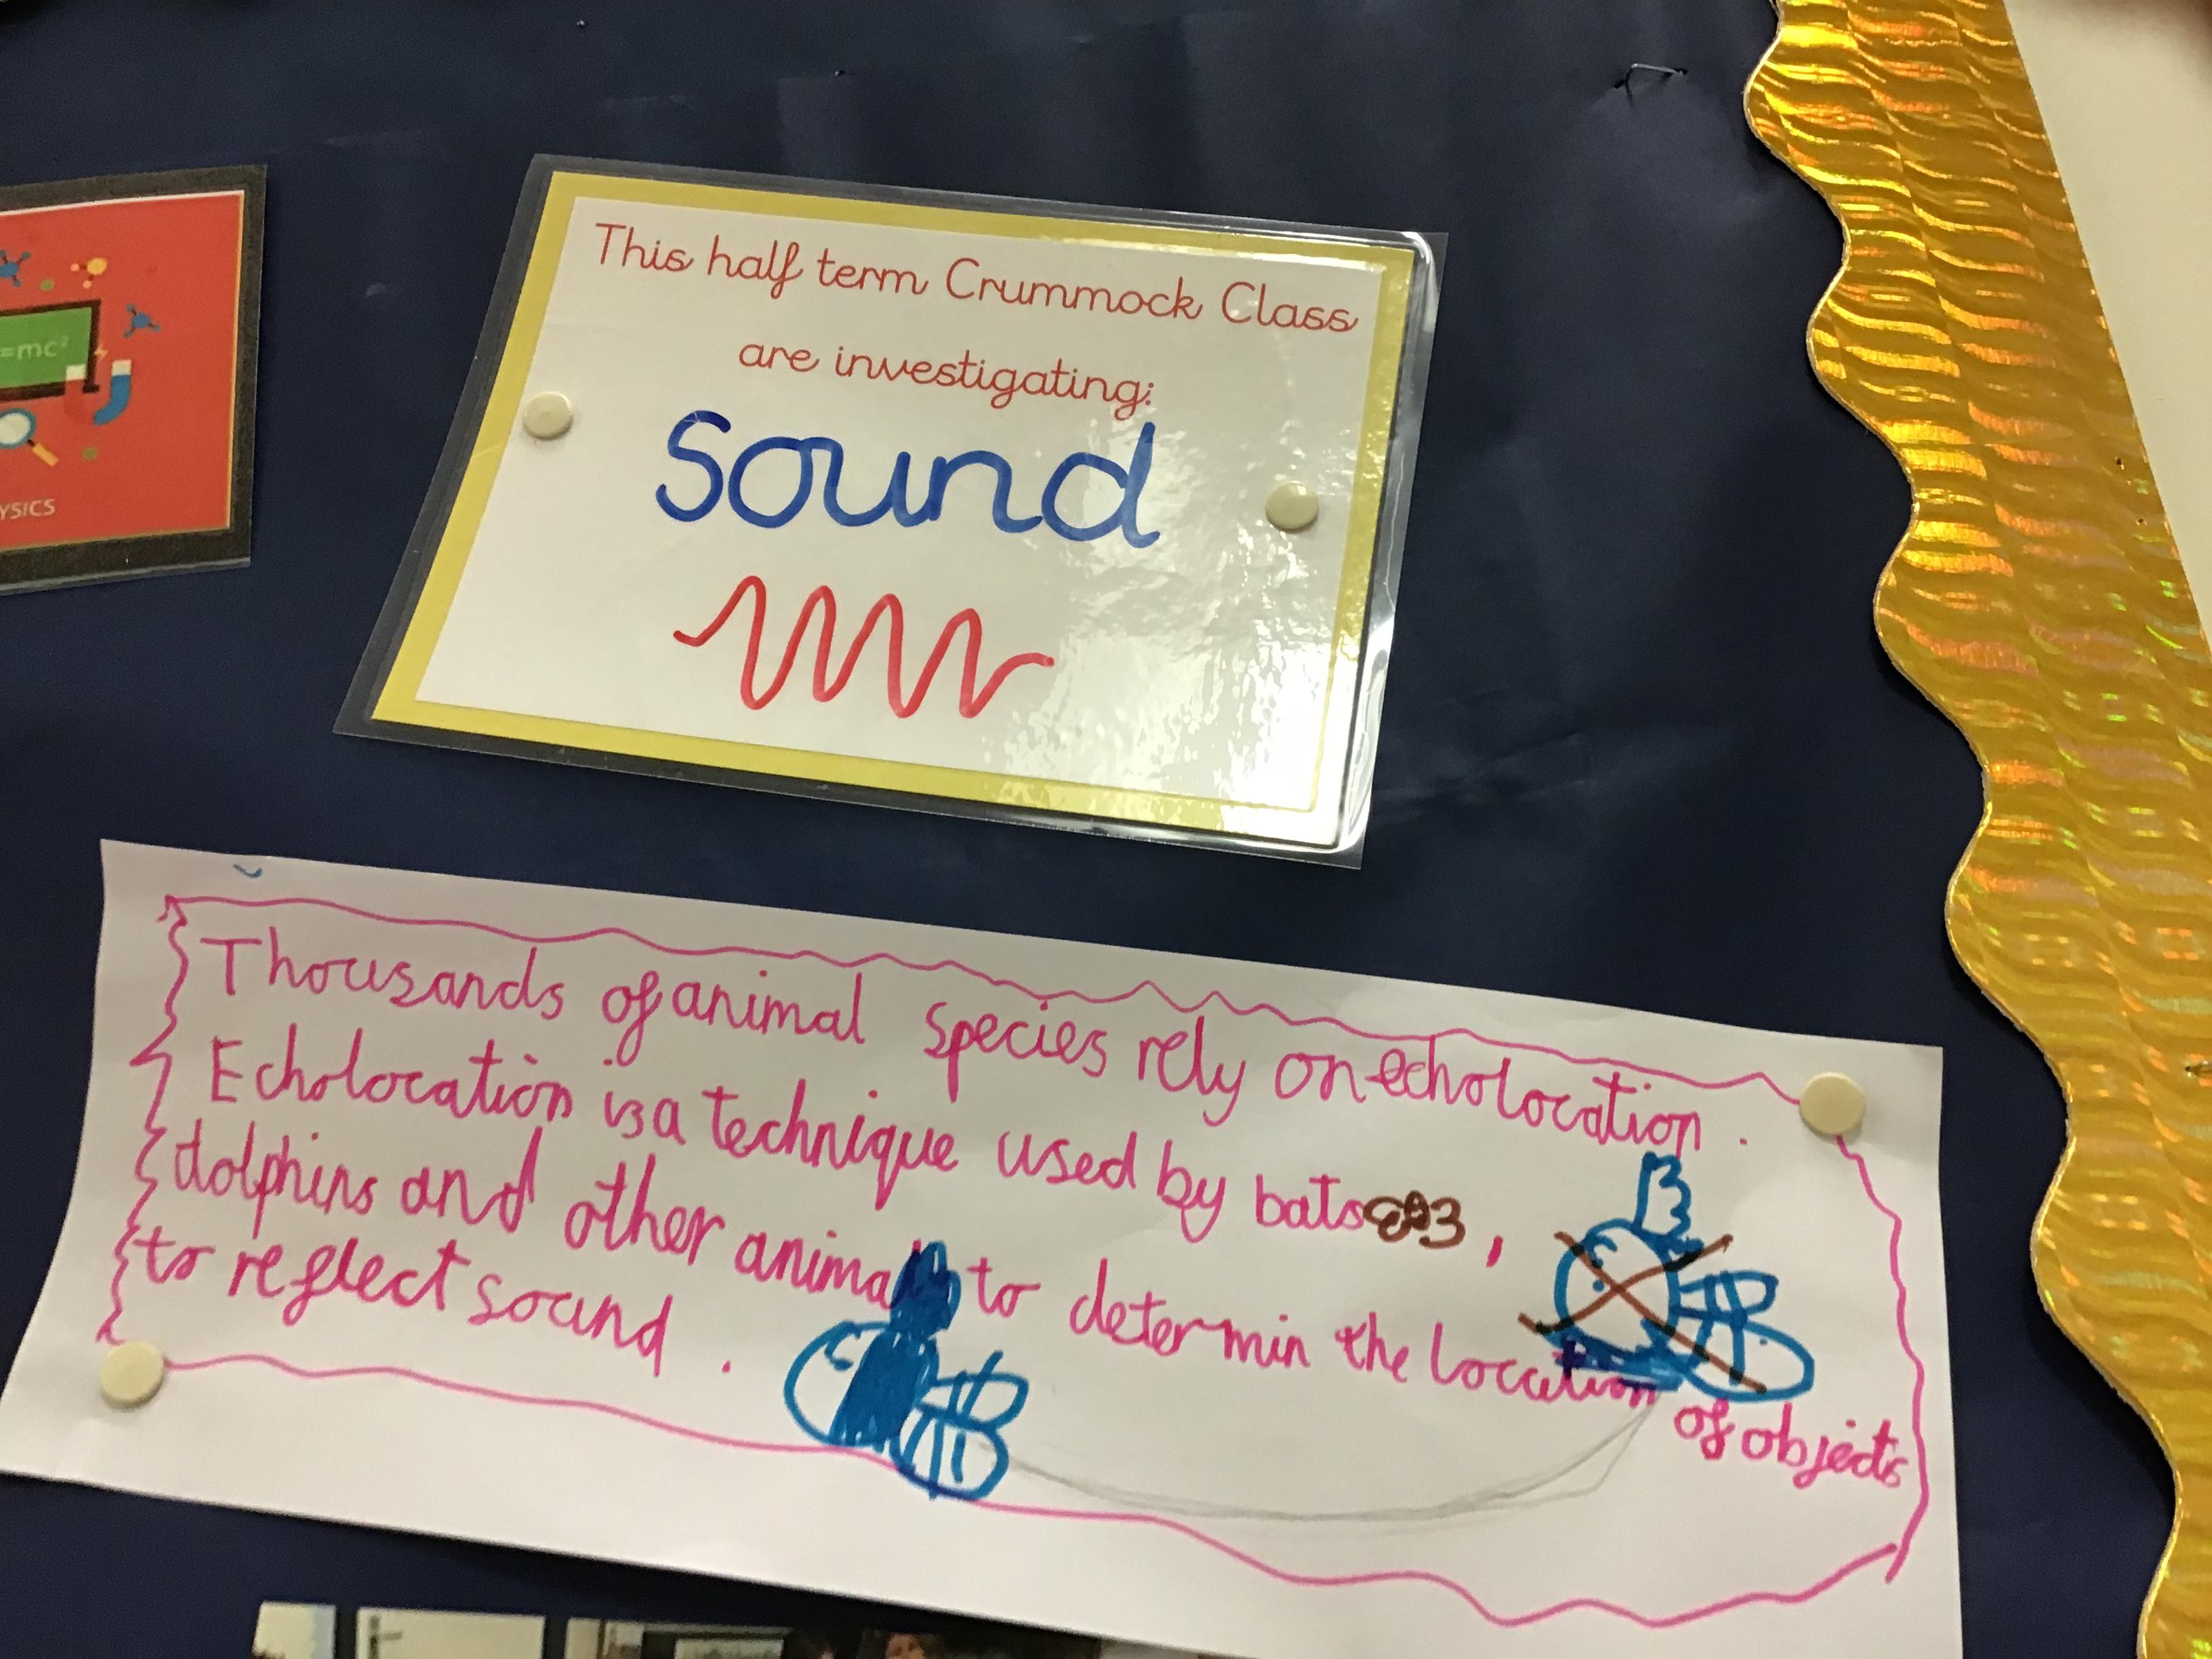 =mc²
YSICS
This half term Crummock Class
are investigating:
Sound
Thousands of animal species rely on echolocation.
Echolocation is a technique used by bats,
dolphins and other animals to determin the location of objects
to reflect sound.